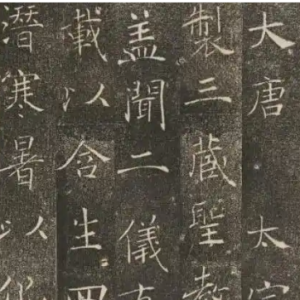 大唐 太宗
製三蔵聖教
盖聞二儀有
載以含生四
潛寒暑以化